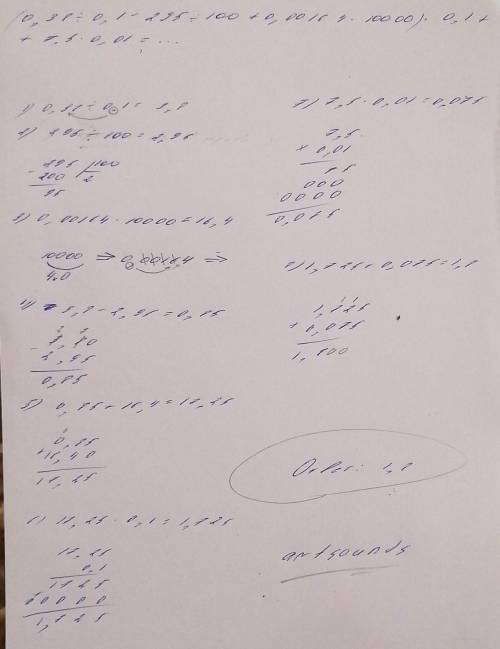 (0,38÷0,1-295÷100+0,00164·10000)·0,1+
+7,5·0,01=...
1) 0,38÷0,1=3,8
2) 295÷100=2,95
295 100
-200 2
95
3) 0,00164·10000=16,4
10000 ⇒ 0,00164 ⇒
4) 3,8-2,95=0,85
- 3,80
2,95
0,85
5) 0,85+16,4=17,25
0,85
+16,40
17,25
6) 17,25·0,1=1,725
17,25
0,1
1725
0000
1,725
7) 7,5·0,01=0,075
7,5
× 0,01
75
000
0000
0,075
8) 1,725+0,075=1,8
1,725
+ 0,075
1,800
Ответ: 1,8
artsounds